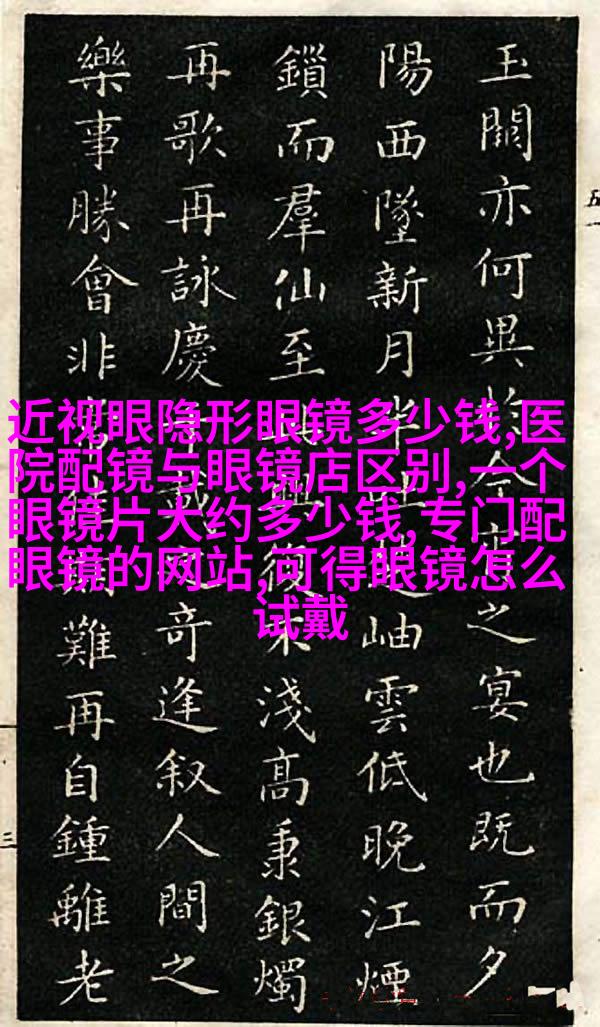 玉關亦何異於今之宴也既而夕
陽西墜新月半岫雲低晚江煙
鎖而羣仙至此興復不淺高秉銀燭
再歌再詠慶千載之奇逢叙人間之
樂事勝會非難再自鍾離老
近视眼隐形眼镜多少钱,医
院配镜与眼镜店区别,一个
眼镜片大约多少钱,专门配
眼镜的网站,可得眼镜怎么
试戴
五一
三